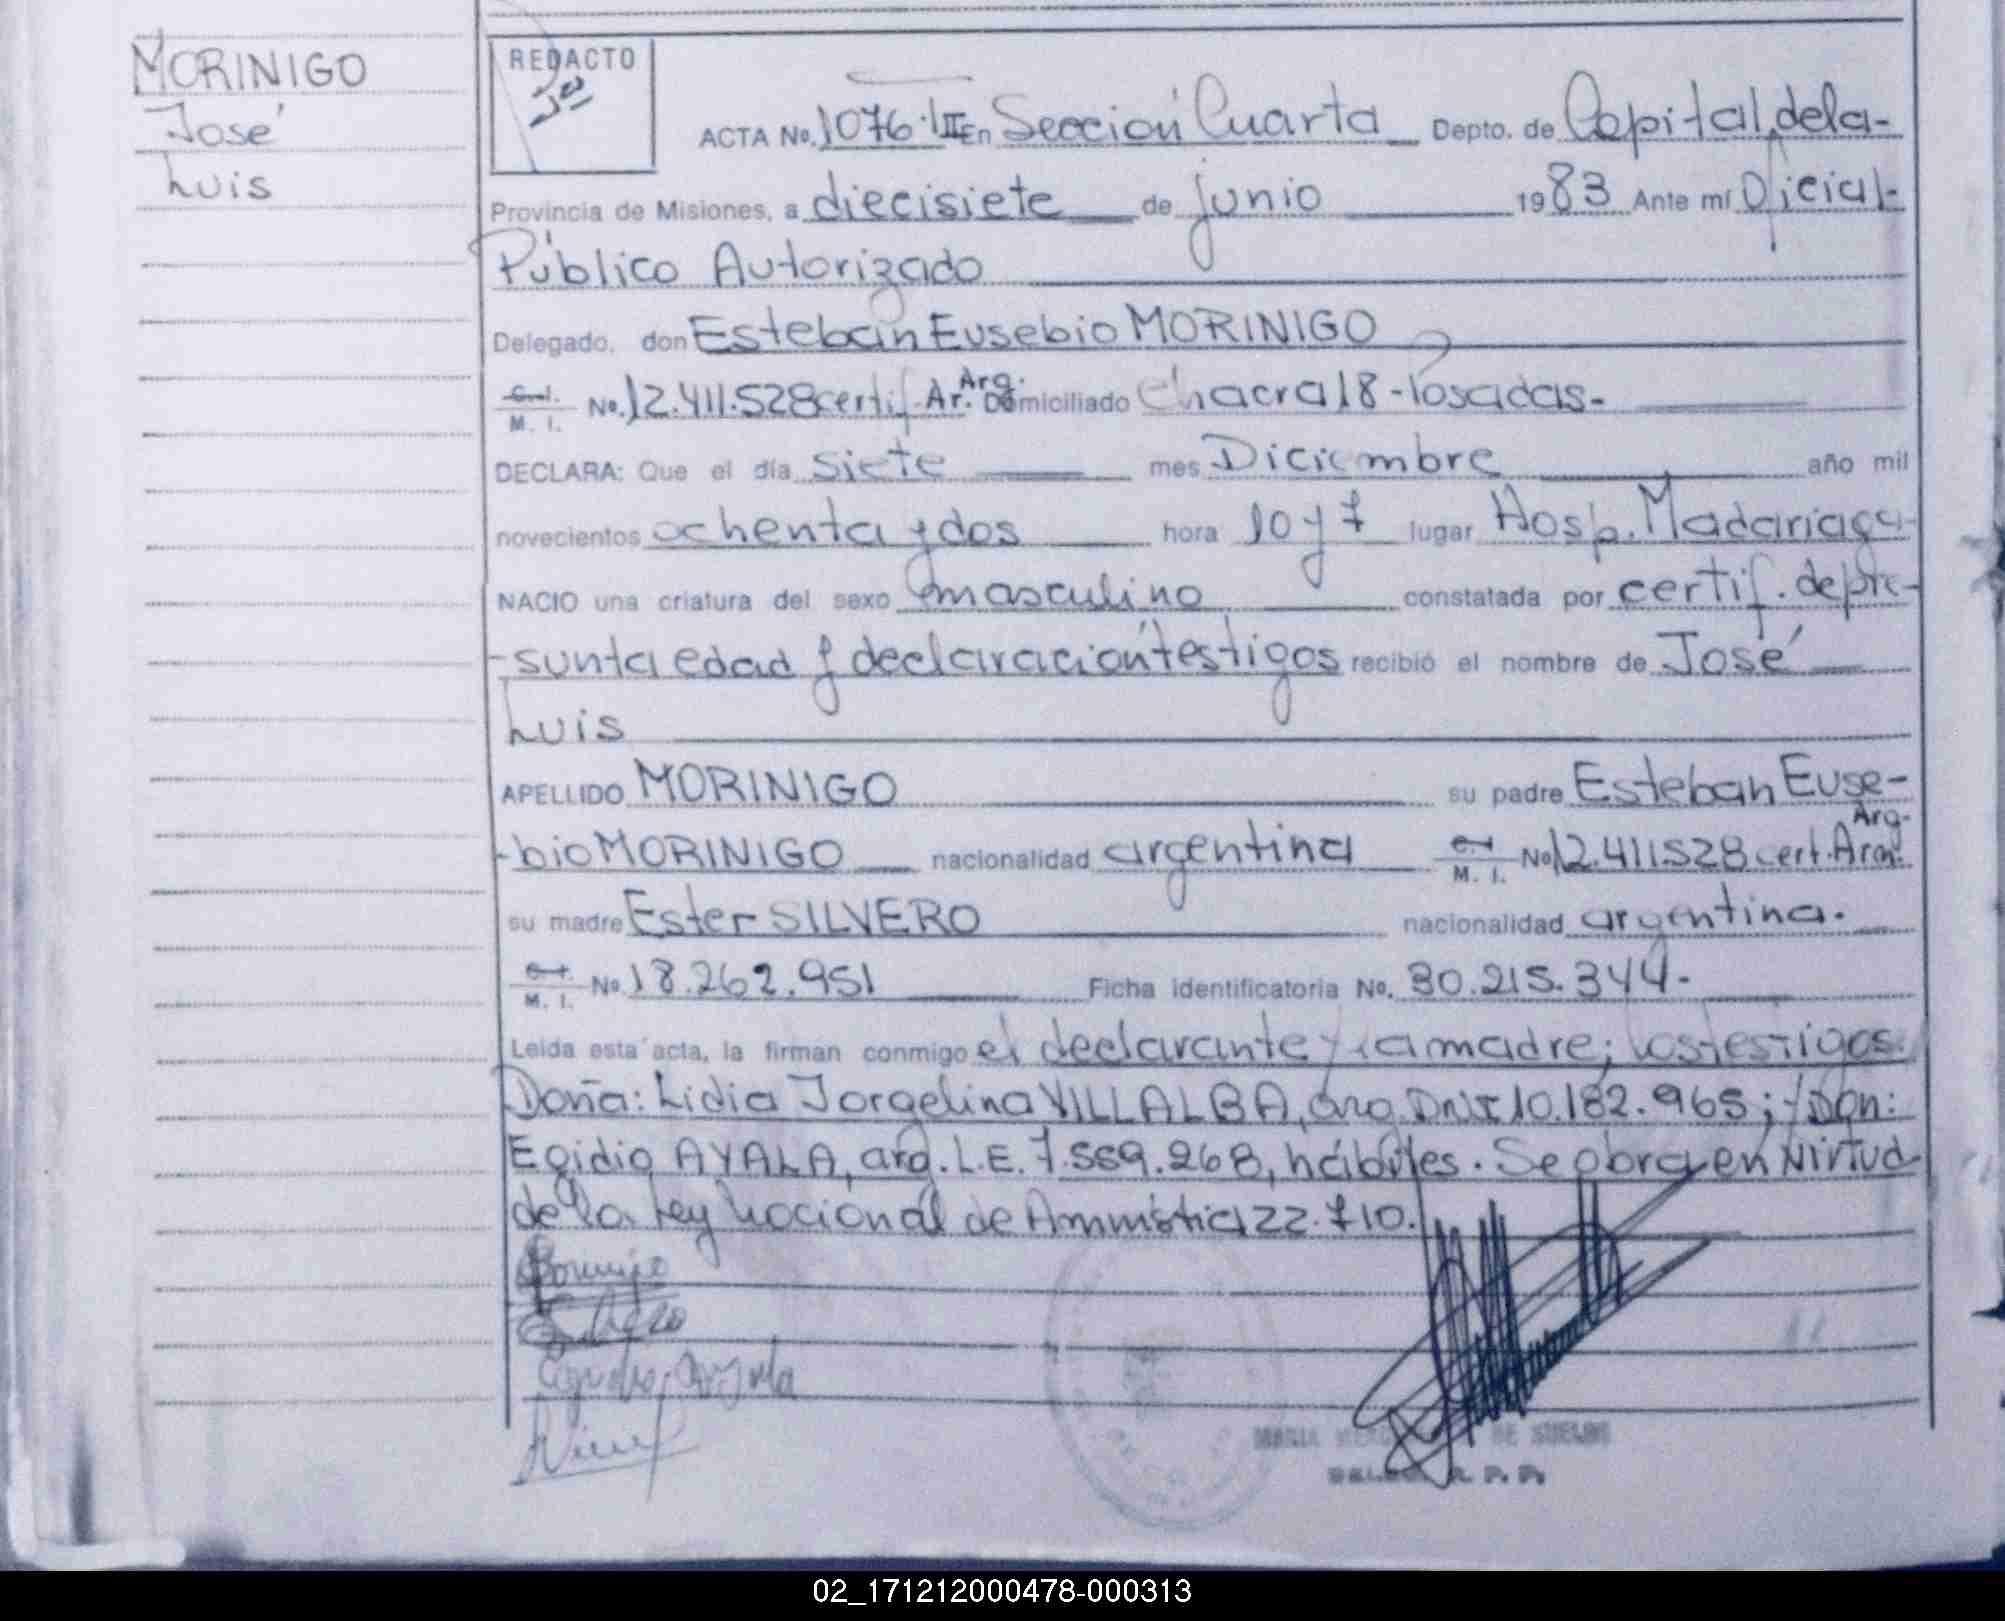 MORINIGO
José
Luis
REDACTO
ACTA No. 1076·III En Sección Cuarta Depto. de Capital, de la-
Provincia de Misiones, a diecisiete de junio 1983 Ante mí Oficial-
Público Autorizado
Delegado, don Esteban Eusebio MORINIGO
C.I. M. I. No. 12.411.528 certif. Ar. Arg. Domiciliado Chacra 18 - Posadas.-
DECLARA: Que el día siete mes Diciembre año mil
novecientos ochenta y dos hora 10 y 7 lugar Hosp. Madariaga-
NACIO una criatura del sexo masculino constatada por certif. de pre-
-sunta edad y declaración testigos recibió el nombre de José
Luis
APELLIDO MORINIGO su padre Esteban Euse-
-bio MORINIGO nacionalidad argentina C.I. M. I. No 12.411.528 cert. Arm. Arg.
su madre Ester SILVERO nacionalidad argentina.
C.I. M. I. No. 18.262.951 Ficha identificatoria No. 30.215.344-
Leída esta acta, la firman conmigo el declarante y la madre; los testigos:
Doña: Lidia Jorgelina VILLALBA, arg. DNI 10.182.965; y Don:
Egidio AYALA, arg. L.E. 7.559.268, hábiles. Se obra en Virtud
de la Ley Nacional de Ammistia 22.710.
02_171212000478-000313